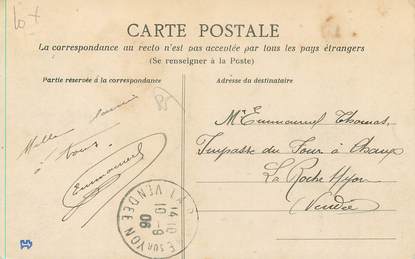 10 +
CARTE POSTALE
La correspondance au recto n'est pas acceptée par tous les pays étrangers
(Se renseigner à la Poste)
Partie réservée à la correspondance
Adresse du destinataire
Mille
à tous
Emmanuel
Mr Emmanuel Thomas,
Impasse du Four à Chaux
La Roche s/yon
Vendée
E SUR YON
VENDÉE
14 10
10 - 9
06